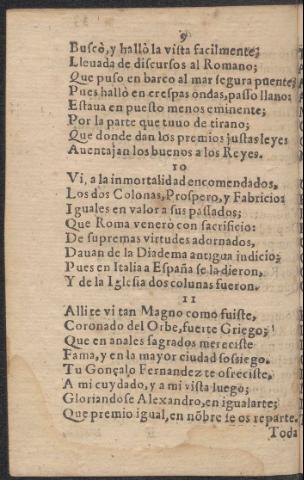 9
Buscò, y hallò la vista facilmente;
Lleuada de discursos al Romano;
Que puso en barco al mar segura puente;
Pues hallò en crespas ondas, passo llano:
Estaua en puesto menos eminente;
Por la parte que tuuo de tirano;
Que donde dan los premios justas leyes
Auentajan los buenos a los Reyes.
10
Vi, a la inmortalidad encomendados,
Los dos Colonas, Prospero, y Fabricio:
Iguales en valor a sus passados;
Que Roma venerò con sacrificio:
De supremas virtudes adornados,
Dauan de la Diadema antigua indicio;
Pues en Italia a España se la dieron,
Y de la Iglesia dos colunas fueron.
11
Alli te vi tan Magno como fuiste,
Coronado del Orbe, fuerte Griego;
Que en anales sagrados mereciste
Fama, y en la mayor ciudad sossiego.
Tu Gonçalo Fernandez te ofreciste,
A mi cuydado, y a mi vista luego;
Gloriandose Alexandro, en igualarte;
Que premio igual, en nõbre se os reparte.
Toda